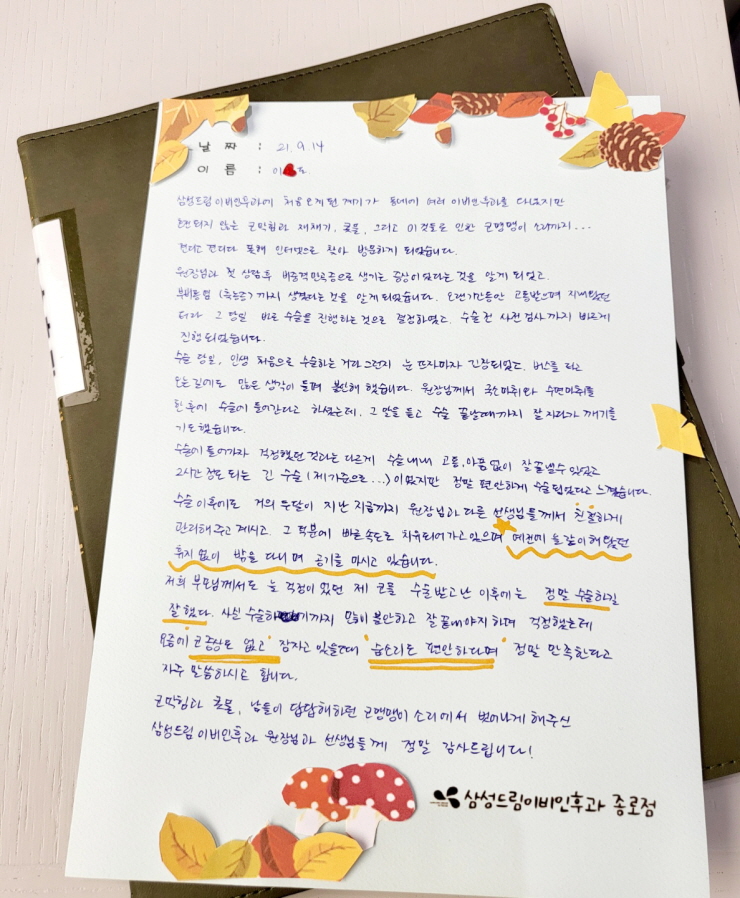 날 짜 : 21.9.14
이 름 : 이
삼성드림이비인후과에 처음오게된 계기가 동네에 여러 이비인후과를 다녔지만
호전되지 않는 코막힘과 재채기, 콧물, 그리고 이것들로 인한 코맹맹이 소리까지...
견디고 견디다 못해 인터넷으로 찾아 방문하게 되었습니다.
원장님과 첫 상담후 비중격만곡증으로 생기는 증상이었다는 것을 알게 되었고.
부비동염 (축농증)까지 생겼다는것을 알게되었습니다. 오랜기간동안 고통받으며 지내왔던
터라 그 당일 바로 수술을 진행하는 것으로 결정하였고. 수술 전 사전 검사까지 빠르게
진행되었습니다.
수술 당일, 인생 처음으로 수술하는 거라 그런지 눈 뜨자마자 긴장되었고. 버스를 타고
오는길에도 많은 생각이 들며 불안해 했습니다. 원장님께서 국소마취와 수면마취를
한 후에 수술에 들어간다고 하셨는데, 그 말을 듣고 수술 끝날때까지 잘 자다가 깨기를
기도했습니다.
수술에 들어가자 걱정했던 것과는 다르게 수술내내 고통,아픔 없이 잘 끝낼수 있었고
2시간 정도 되는 긴 수술 (제 기준으로...)이었지만 정말 편안하게 수술되었다고 느꼈습니다.
수술 이후에도 거의 두달이 지난 지금까지 원장님과 다른 선생님들께서 친절하게
관리해주고 계시고. 그 덕분에 빠른속도로 치유되어가고있으며 예전에 늘 같이 해왔던
휴지 없이 밖을 다니며 공기를 마시고 있습니다.
저희 부모님께서도 늘 걱정이 었던 제 코를 수술받고난 이후에는 정말 수술하길
잘했다. 사실 수술하기까지 많이 불안하고 잘 끝내야지하며 걱정했는데
요즘에 코증상도 없고 잠자고 있을때 '숨소리도 편안하다며' 정말 만족한다고
자주 말씀하시고 합니다.
코막힘과 콧물, 남들이 답답해하던 코맹맹이 소리에서 벗어나게 해주신
삼성드림이비인후과 원장님과 선생님들께 정말 감사드립니다!
삼성드림이비인후과 종로점